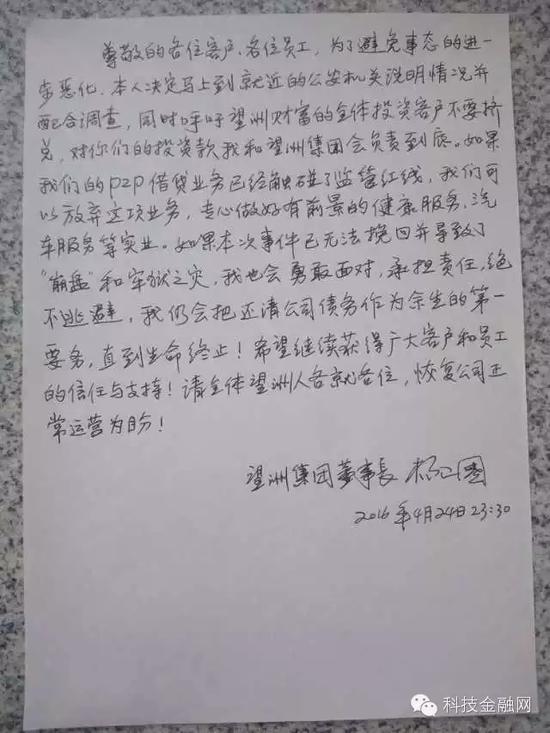 尊敬的各位客户、各位员工，为了避免事态的进一
步恶化，本人决定马上到就近的公安机关说明情况并
配合调查，同时呼吁望洲财富的全体投资客户不要挤
兑，对你们的投资款我和望洲集团会负责到底。如果
我们的P2P借贷业务已经触碰了监管红线，我们可
以放弃这项业务，专心做好有前景的健康服务、汽
车服务等实业。如果本次事件已无法挽回并导致了
“崩盘”和牢狱之灾，我也会勇敢面对，承担责任，绝
不逃避，我仍会把还清公司债务作为余生的第一
要务，直到生命终止！希望继续获得广大客户和员工
的信任与支持！请全体望洲人各就各位，恢复公司正
常运营为盼！
望洲集团董事長 杨卫国
2016年4月24日23:30
科技金融网